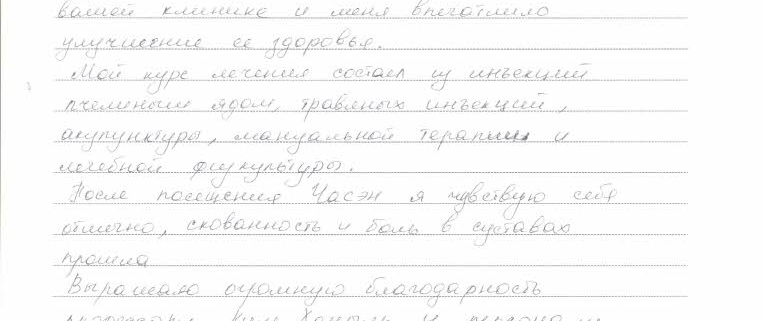 вашей клинике и меня впечатлило
улучшение ее здоровья.
Мой курс лечения состоял из инъекций
пчелиным ядом, травяных инъекций,
акупунктуры, мануальной терапии и
лечебной физкультуры.
После посещения Часэн я чувствую себя
отлично, скованность и боль в суставах
прошла
Выражаю огромную благодарность